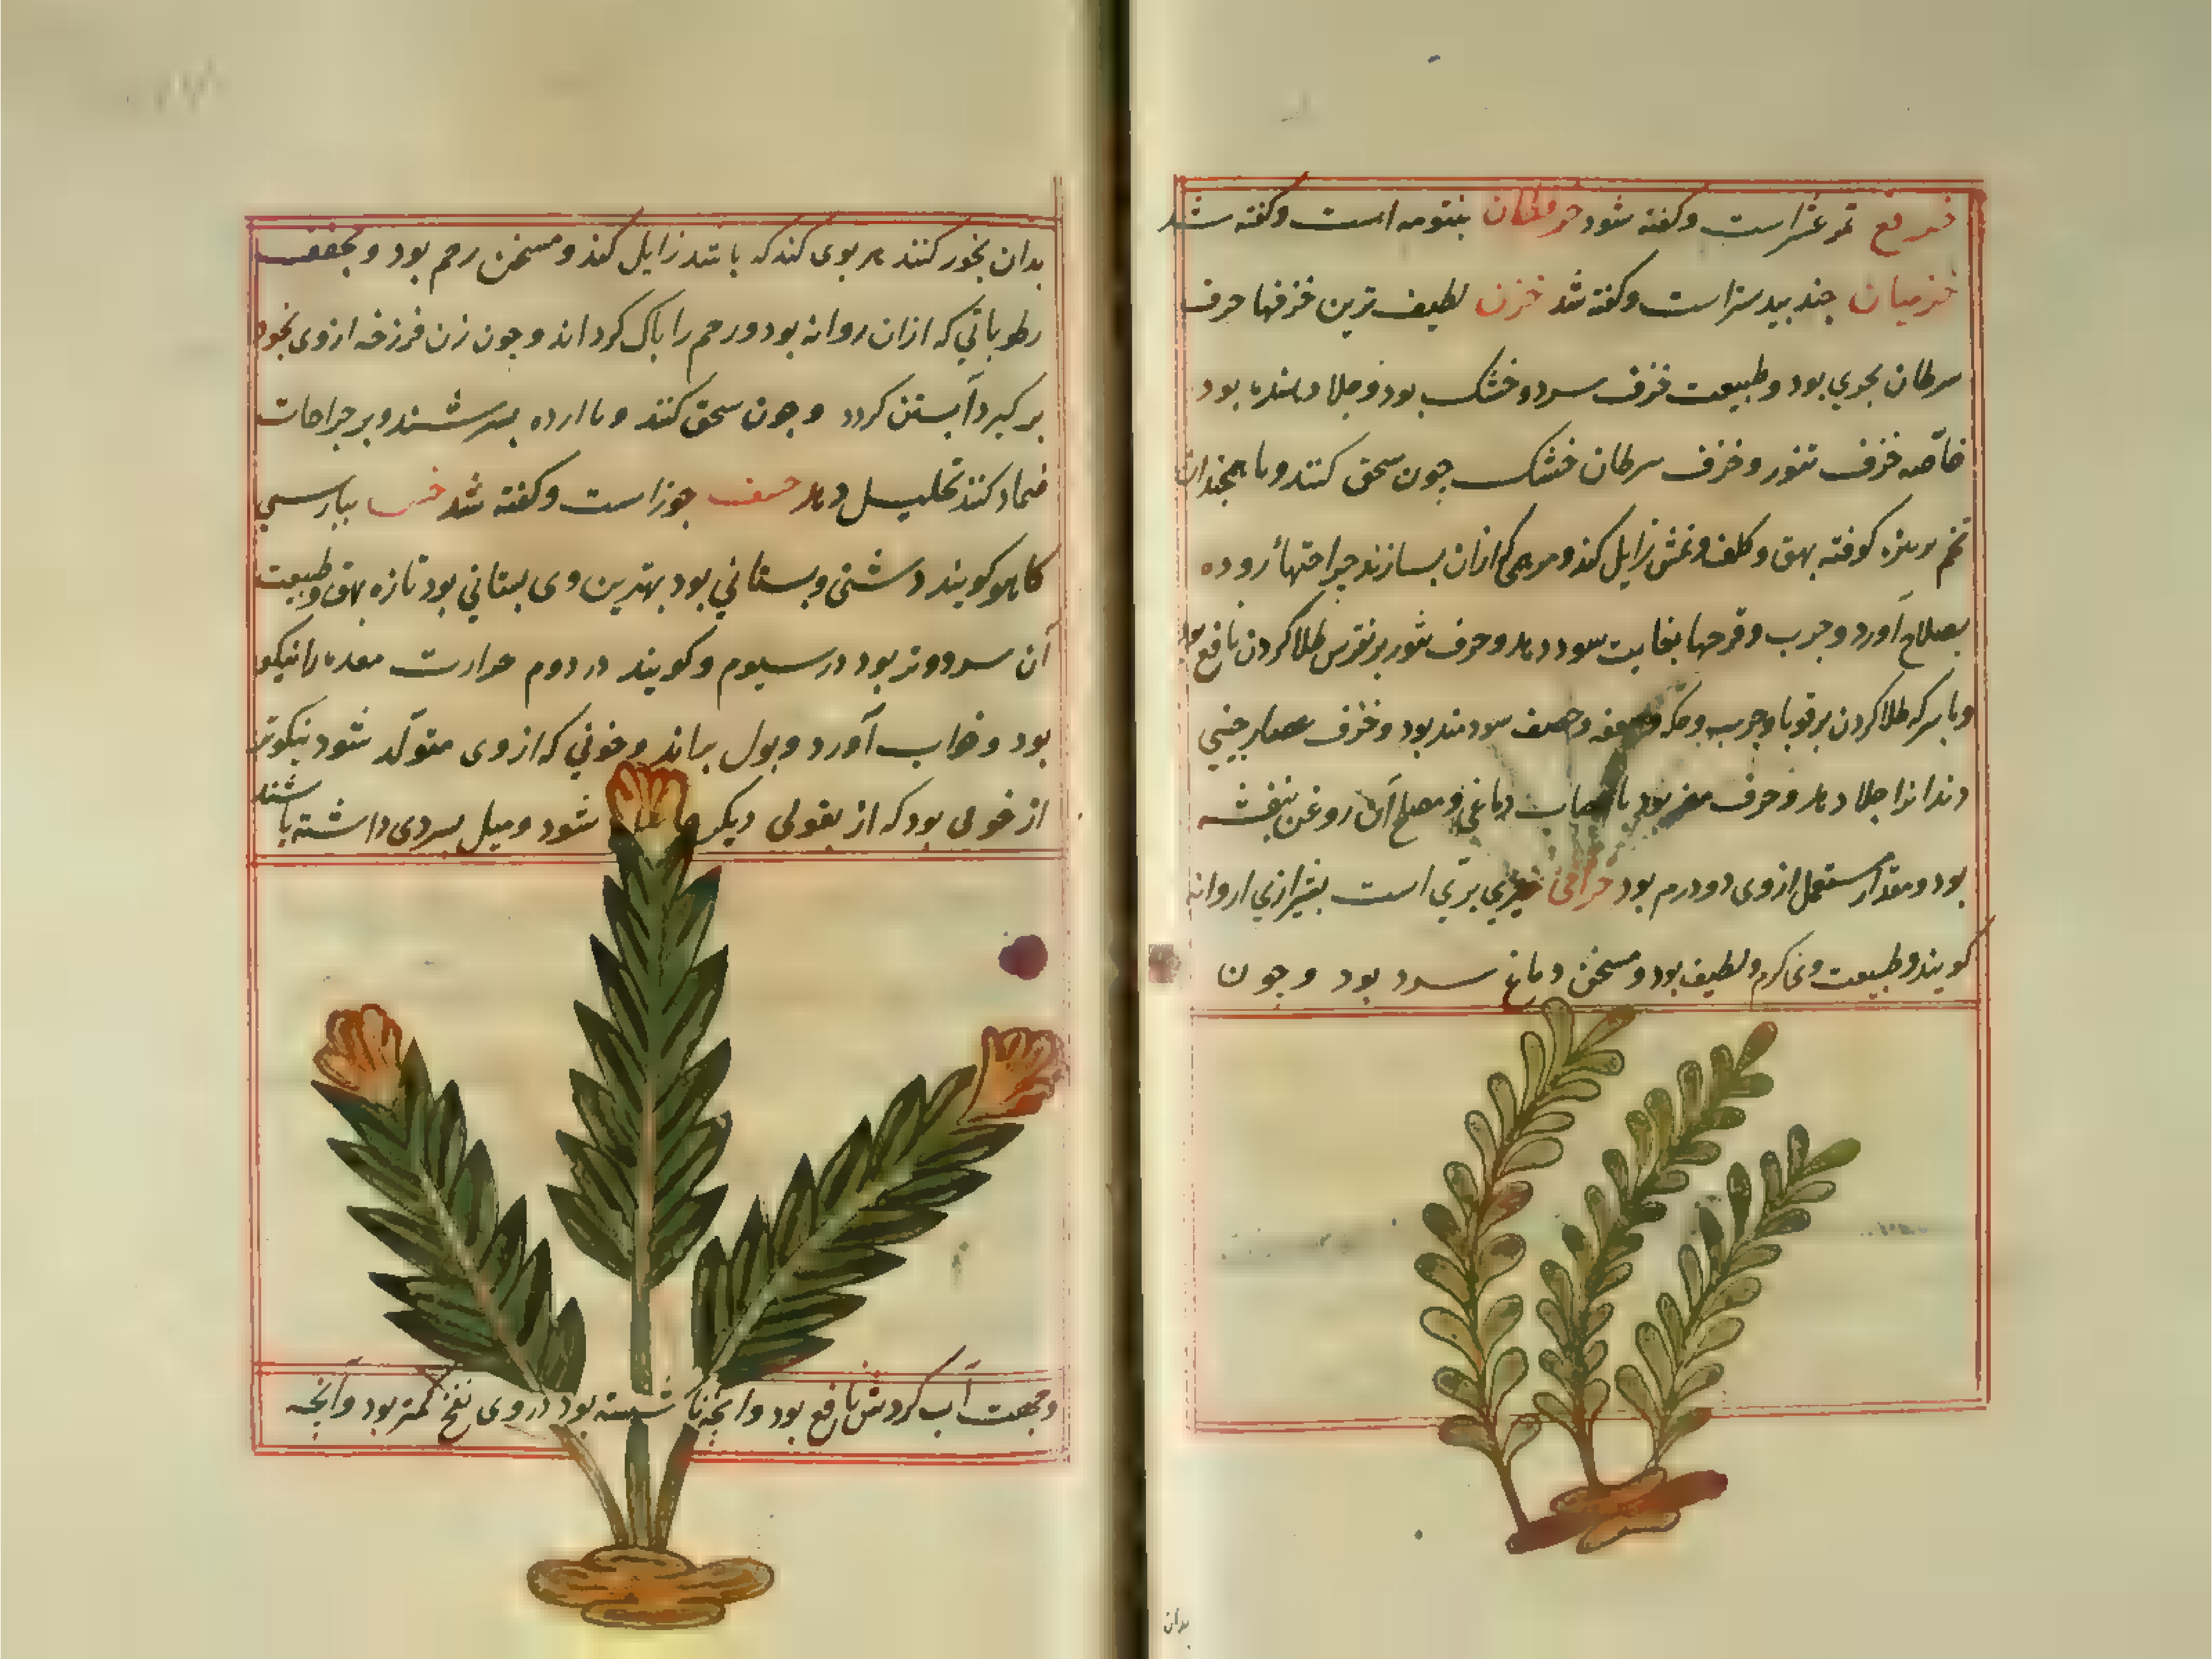 خرفع ثمر عشر است و کفته شود بنتومه است و کفته شد
خزمیان جند بیدستر است و کفته شد خزف لطیف ترین خزفها خزف
سرطان بحری بود و طبیعت خزف سرد و خشک بود و جلا دهنده بود
خاصه خزف تنور و خزف سرطان خشک جون سحق کنند و با همجندان
تخم کوفته بهق و کلف و نمش زایل کند و مرهمی ازان بسازند جراحتها
بصلاح آورد و جرب و قرحها بغایت سود دهد و خزف تنور بر نقرس طلا کردن نافع بود
و با سرکه طلا کردن بر قوبا و جرب و حکه و سعفه و حصف سودمند بود و خزف جینی
دندانرا جلا دهد و خزف مضر بود باعصاب دماغی و مصلح آن روغن بنفشه
بود و مقدار مستعمل از وی دو درم بود خزامی خیری بری است بشیرازی اروانه
کویند و طبیعت وی کرم و لطیف بود و مسخن دماغ سرد بود و جون
بدان
بدان بخور کنند هر بوی کند که باشد زایل کند و مسخن رحم بود و مجفف
رطوباتی که ازان روانه بود و رحم را باک کرداند و جون زن فرزجه از وی بخود
بر کیرد آبستن کردد و جون سحق کنند و با ارده بسرشند و بر جراحات
ضماد کنند تحلیل دهد خسف جوز است و کفته شد خس ببارسی
کاهو کویند دشتی و بستانی بود بهترین وی بستانی بود تازه بهق و طبیعت
آن سرد و تر بود در سیوم و کویند در دوم حرارت معده را نیکو
بود و خواب آورد و بول براند و خونی که از وی متولد شود نیکوتر
از خونی بود که از بقولی دیکر شود و میل بسردی داشته باشند
وجهت آب کردش نافع بود و آنجه ناشسته بود در وی نفخ کمتر بود و آنجه